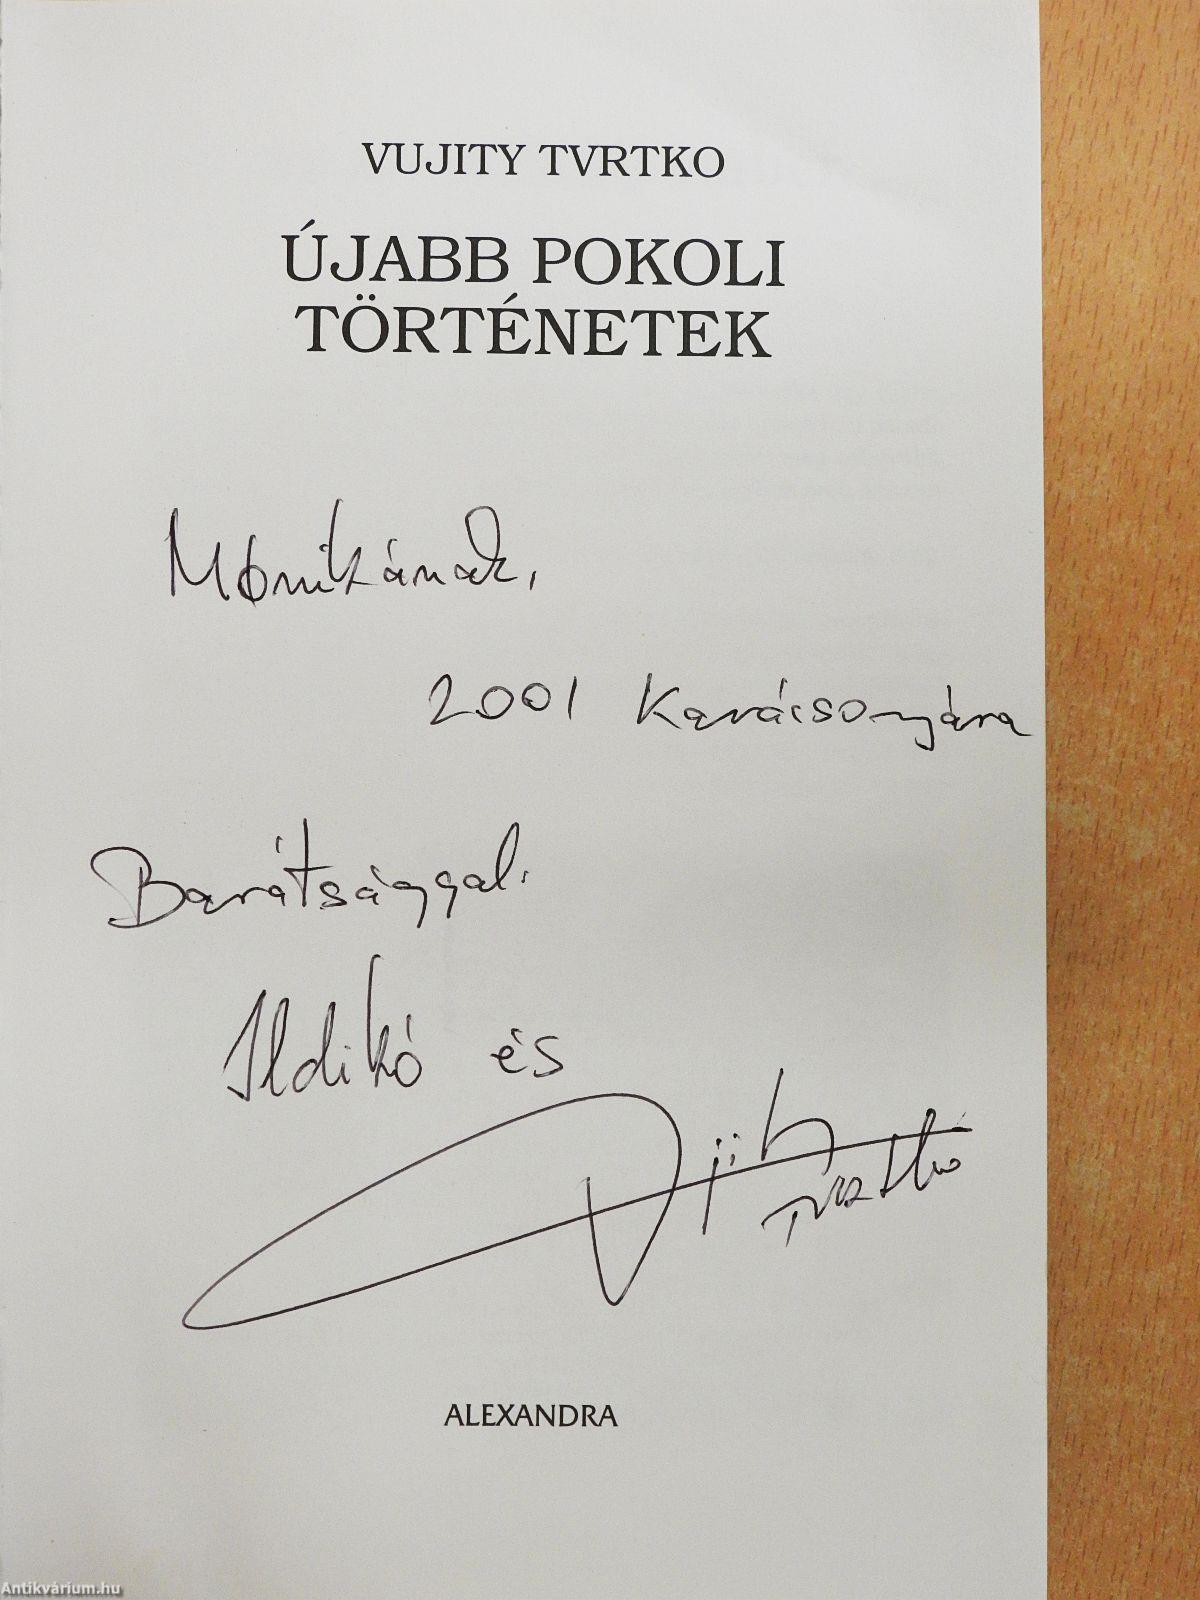 VUJITY TVRTKO
ÚJABB POKOLI
TÖRTÉNETEK
Mónikának,
2001 Karácsonyára
Barátsággal.
Ildikó és
Vujity
Tvrtko
ALEXANDRA
Antikvárium.hu